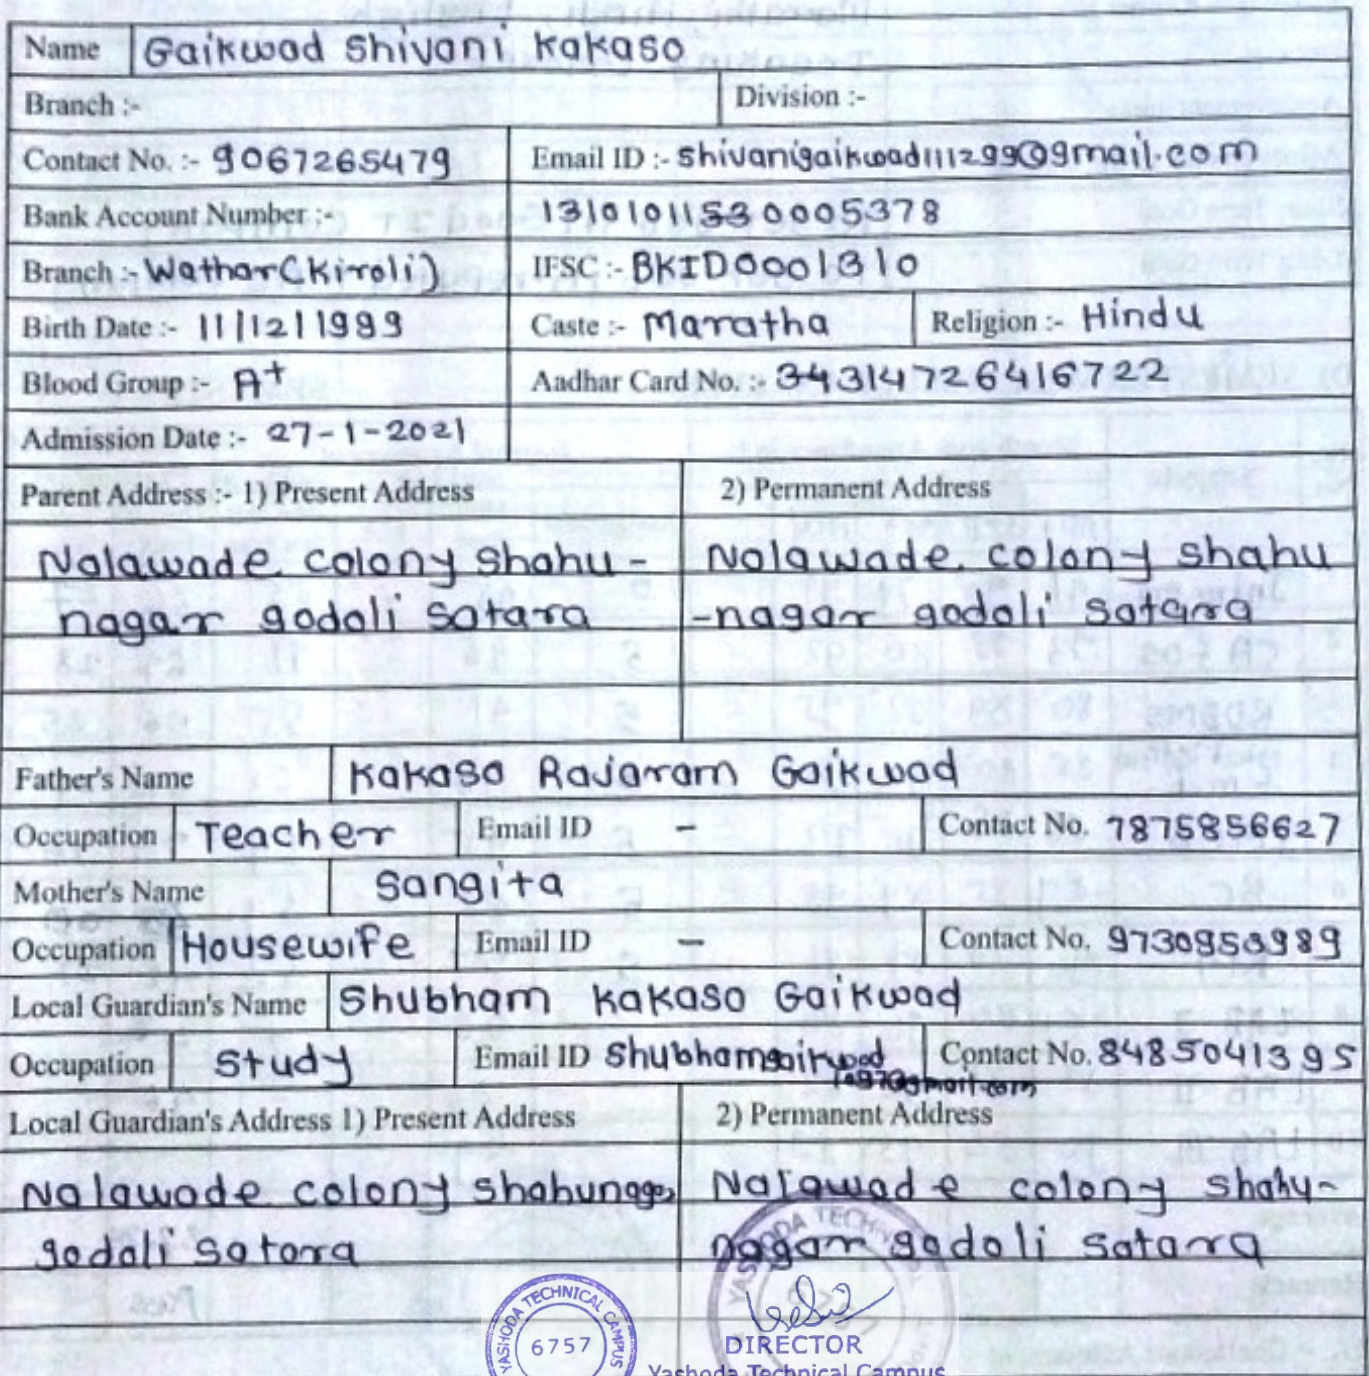 Name Gaikwad Shivani Kakaso
Branch :- Division :-
Contact No. :- 9067265479 Email ID :- shivanigaikwad111299@gmail.com
Bank Account Number :- 13101011530005378
Branch :- Wathar(kiroli) IFSC :- BKID0001310
Birth Date :- 11/12/1999 Caste :- Maratha Religion :- Hindu
Blood Group :- A+ Aadhar Card No. :- 34314726416722
Admission Date :- 27-1-2021
Parent Address :- 1) Present Address 2) Permanent Address
Nalawade colony Shahu- Nalawade colony shahu
nagar godoli satara -nagar godoli satara
Father's Name Kakaso Rajaram Gaikwad
Occupation Teacher Email ID - Contact No. 7875856627
Mother's Name Sangita
Occupation Housewife Email ID - Contact No. 9730950989
Local Guardian's Name Shubham Kakaso Gaikwad
Occupation Study Email ID Shubhamgaikwad Contact No. 8485041395
1097@gmail.com
Local Guardian's Address 1) Present Address 2) Permanent Address
Nalawade colony shahunagar Nalawade colony shahu-
godoli satara nagar godoli satara
YASHODA TECHNICAL CAMPUS
6757
YASHODA TECH
DIRECTOR
Yashoda Technical Campus